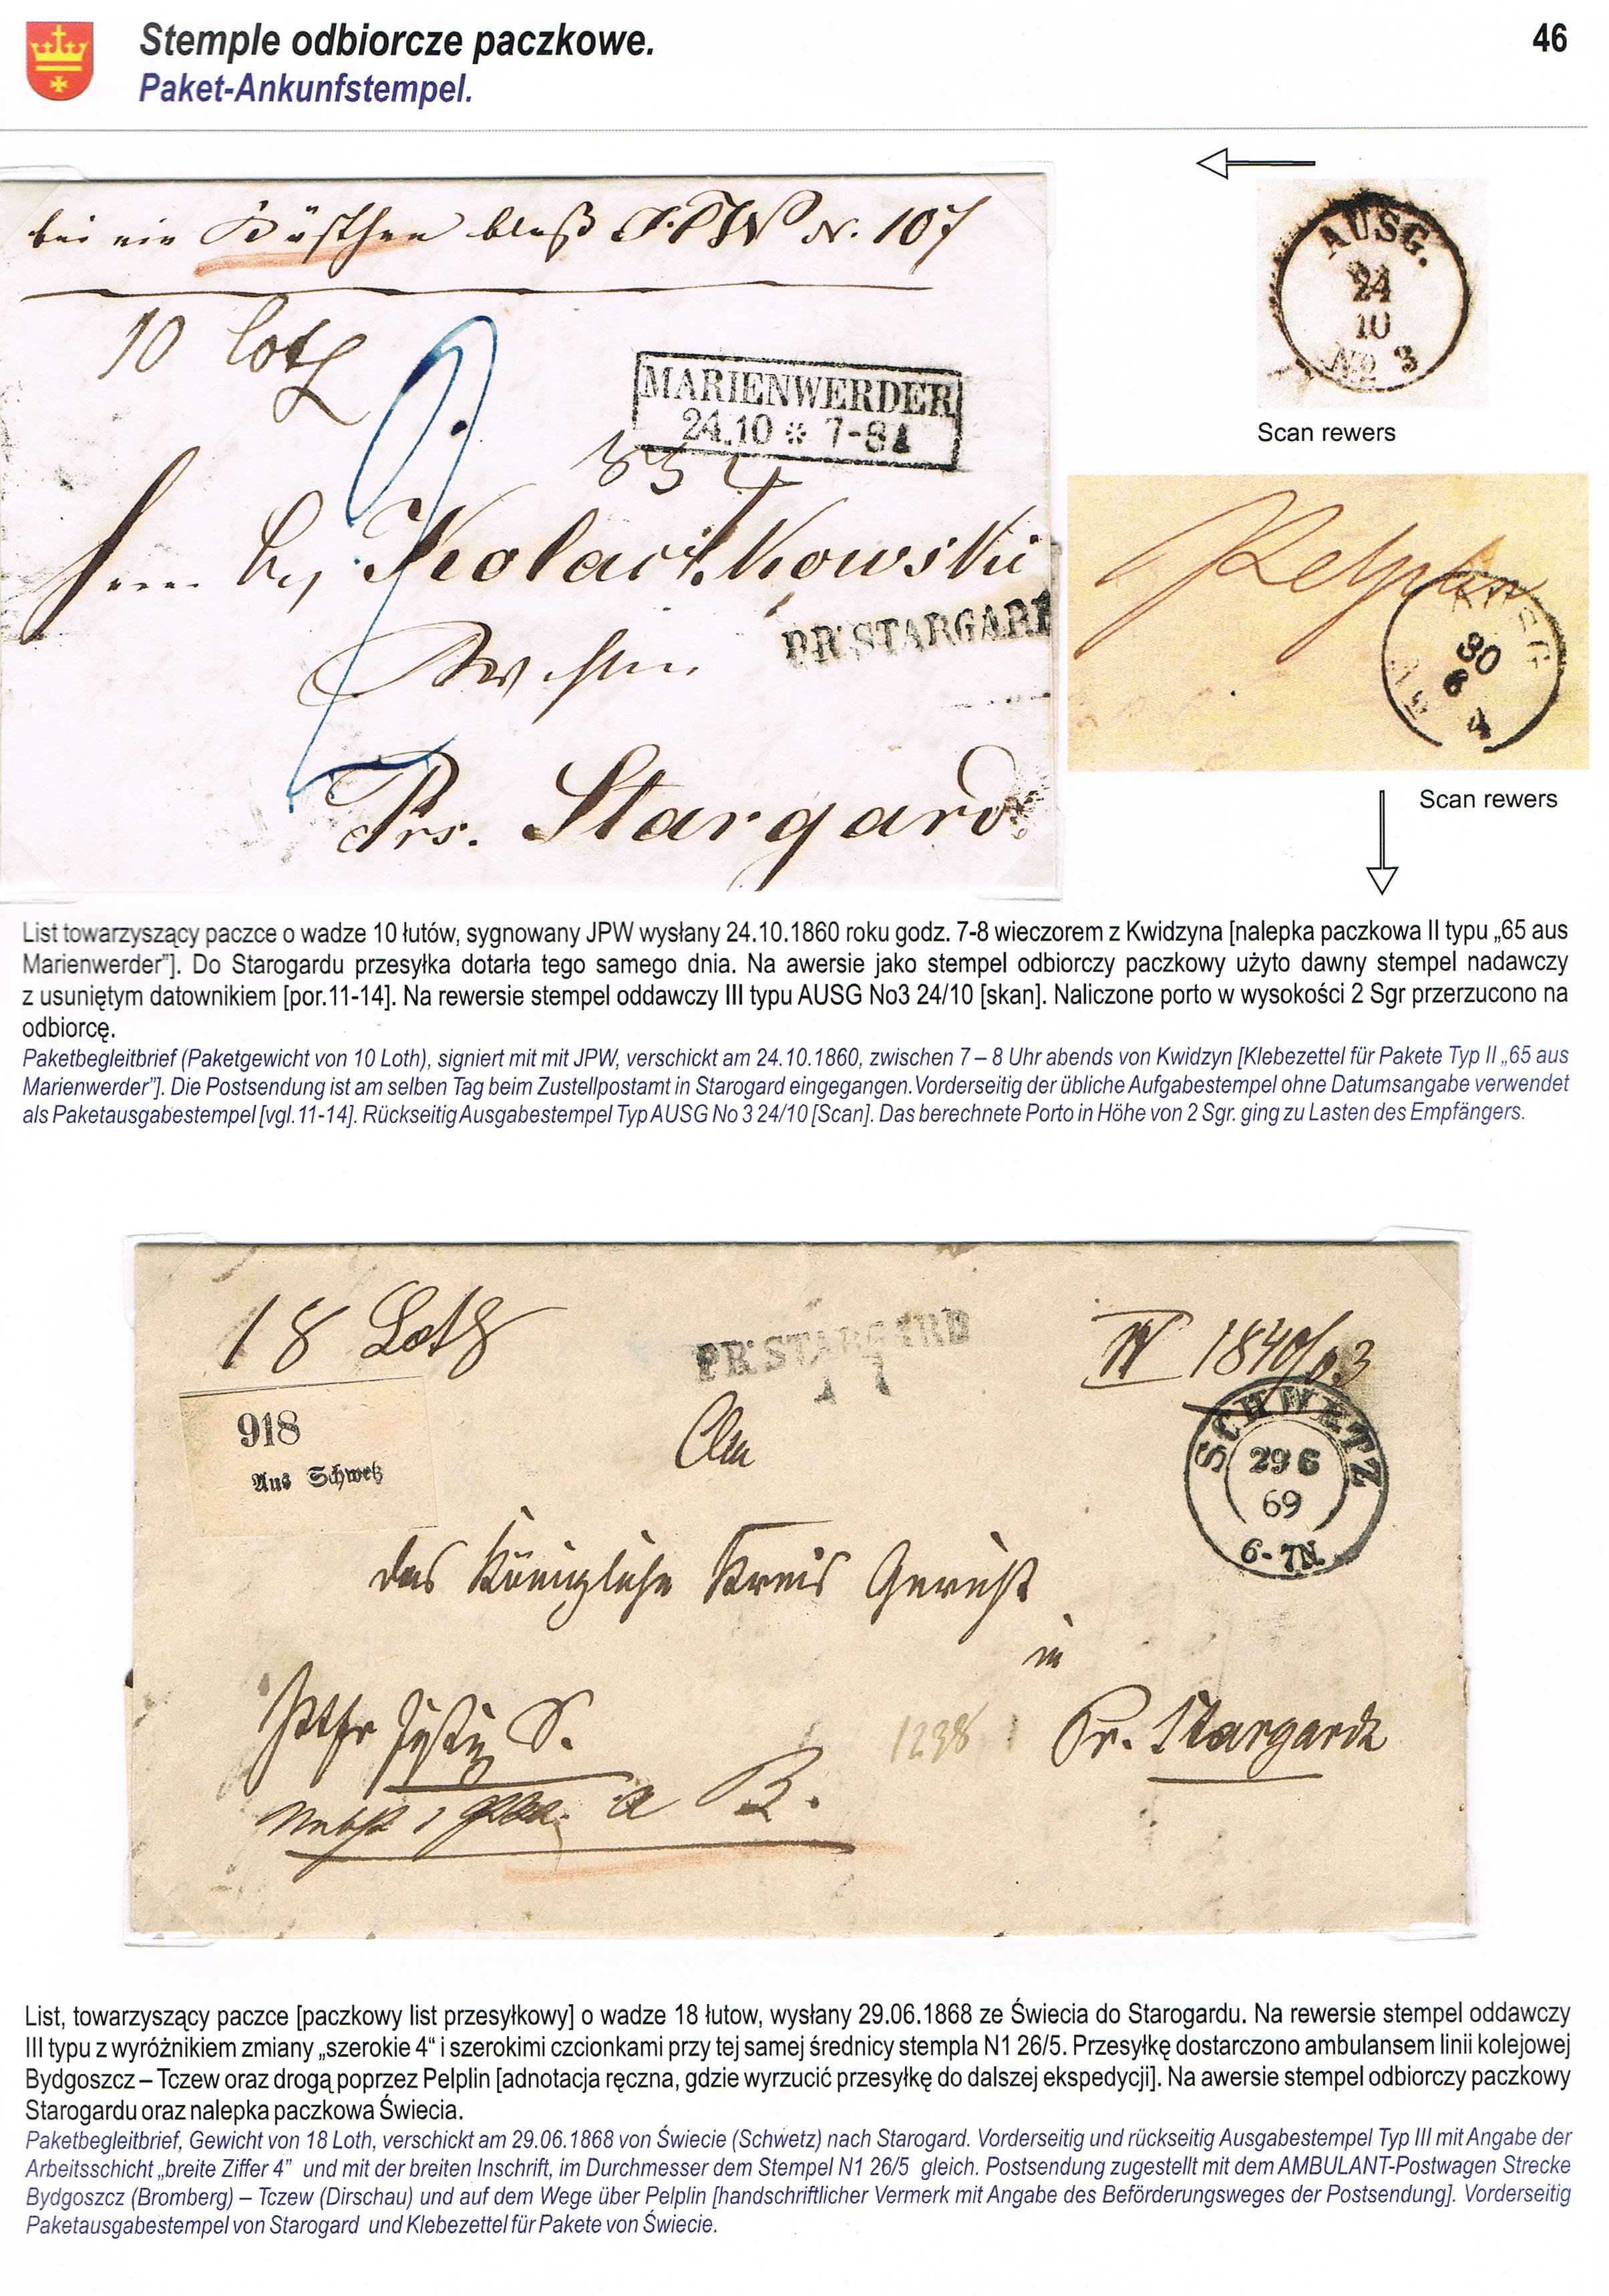 Stemple odbiorcze paczkowe.
46
Paket-Ankunfstempel.
bei ein Kästchen JPW N. 107
10 Loth
MARIENWERDER
24.10 * 7-8
PR. STARGARD
Prs. Stargard
AUSG.
24
10
No 3
Scan rewers
Pelplin
AUSG
30
6
No 4
Scan rewers
List towarzyszący paczce o wadze 10 łutów, sygnowany JPW wysłany 24.10.1860 roku godz. 7-8 wieczorem z Kwidzyna [nalepka paczkowa II typu „65 aus
Marienwerder”]. Do Starogardu przesyłka dotarła tego samego dnia. Na awersie jako stempel odbiorczy paczkowy użyto dawny stempel nadawczy
z usuniętym datownikiem [por.11-14]. Na rewersie stempel oddawczy III typu AUSG No3 24/10 [skan]. Naliczone porto w wysokości 2 Sgr przerzucono na
odbiorcę.
Paketbegleitbrief (Paketgewicht von 10 Loth), signiert mit mit JPW, verschickt am 24.10.1860, zwischen 7 – 8 Uhr abends von Kwidzyn [Klebezettel für Pakete Typ II „65 aus
Marienwerder”]. Die Postsendung ist am selben Tag beim Zustellpostamt in Starogard eingegangen. Vorderseitig der übliche Aufgabestempel ohne Datumsangabe verwendet
als Paketausgabestempel [vgl. 11-14]. Rückseitig Ausgabestempel Typ AUSG No 3 24/10 [Scan]. Das berechnete Porto in Höhe von 2 Sgr. ging zu Lasten des Empfängers.
18 Loth
PR. STARGARD
918
Aus Schwetz
SCHWETZ
29 6
69
6-7N.
An
das Königliche Kreis Gericht
in
Pr. Stargardt
1238
a B.
List, towarzyszący paczce [paczkowy list przesyłkowy] o wadze 18 łutow, wysłany 29.06.1868 ze Świecia do Starogardu. Na rewersie stempel oddawczy
III typu z wyróżnikiem zmiany „szerokie 4“ i szerokimi czcionkami przy tej samej średnicy stempla N1 26/5. Przesyłkę dostarczono ambulansem linii kolejowej
Bydgoszcz – Tczew oraz drogą poprzez Pelplin [adnotacja ręczna, gdzie wyrzucić przesyłkę do dalszej ekspedycji]. Na awersie stempel odbiorczy paczkowy
Starogardu oraz nalepka paczkowa Świecia.
Paketbegleitbrief, Gewicht von 18 Loth, verschickt am 29.06.1868 von Świecie (Schwetz) nach Starogard. Vorderseitig und rückseitig Ausgabestempel Typ III mit Angabe der
Arbeitsschicht „breite Ziffer 4” und mit der breiten Inschrift, im Durchmesser dem Stempel N1 26/5 gleich. Postsendung zugestellt mit dem AMBULANT-Postwagen Strecke
Bydgoszcz (Bromberg) – Tczew (Dirschau) und auf dem Wege über Pelplin [handschriftlicher Vermerk mit Angabe des Beförderungsweges der Postsendung]. Vorderseitig
Paketausgabestempel von Starogard und Klebezettel für Pakete von Świecie.